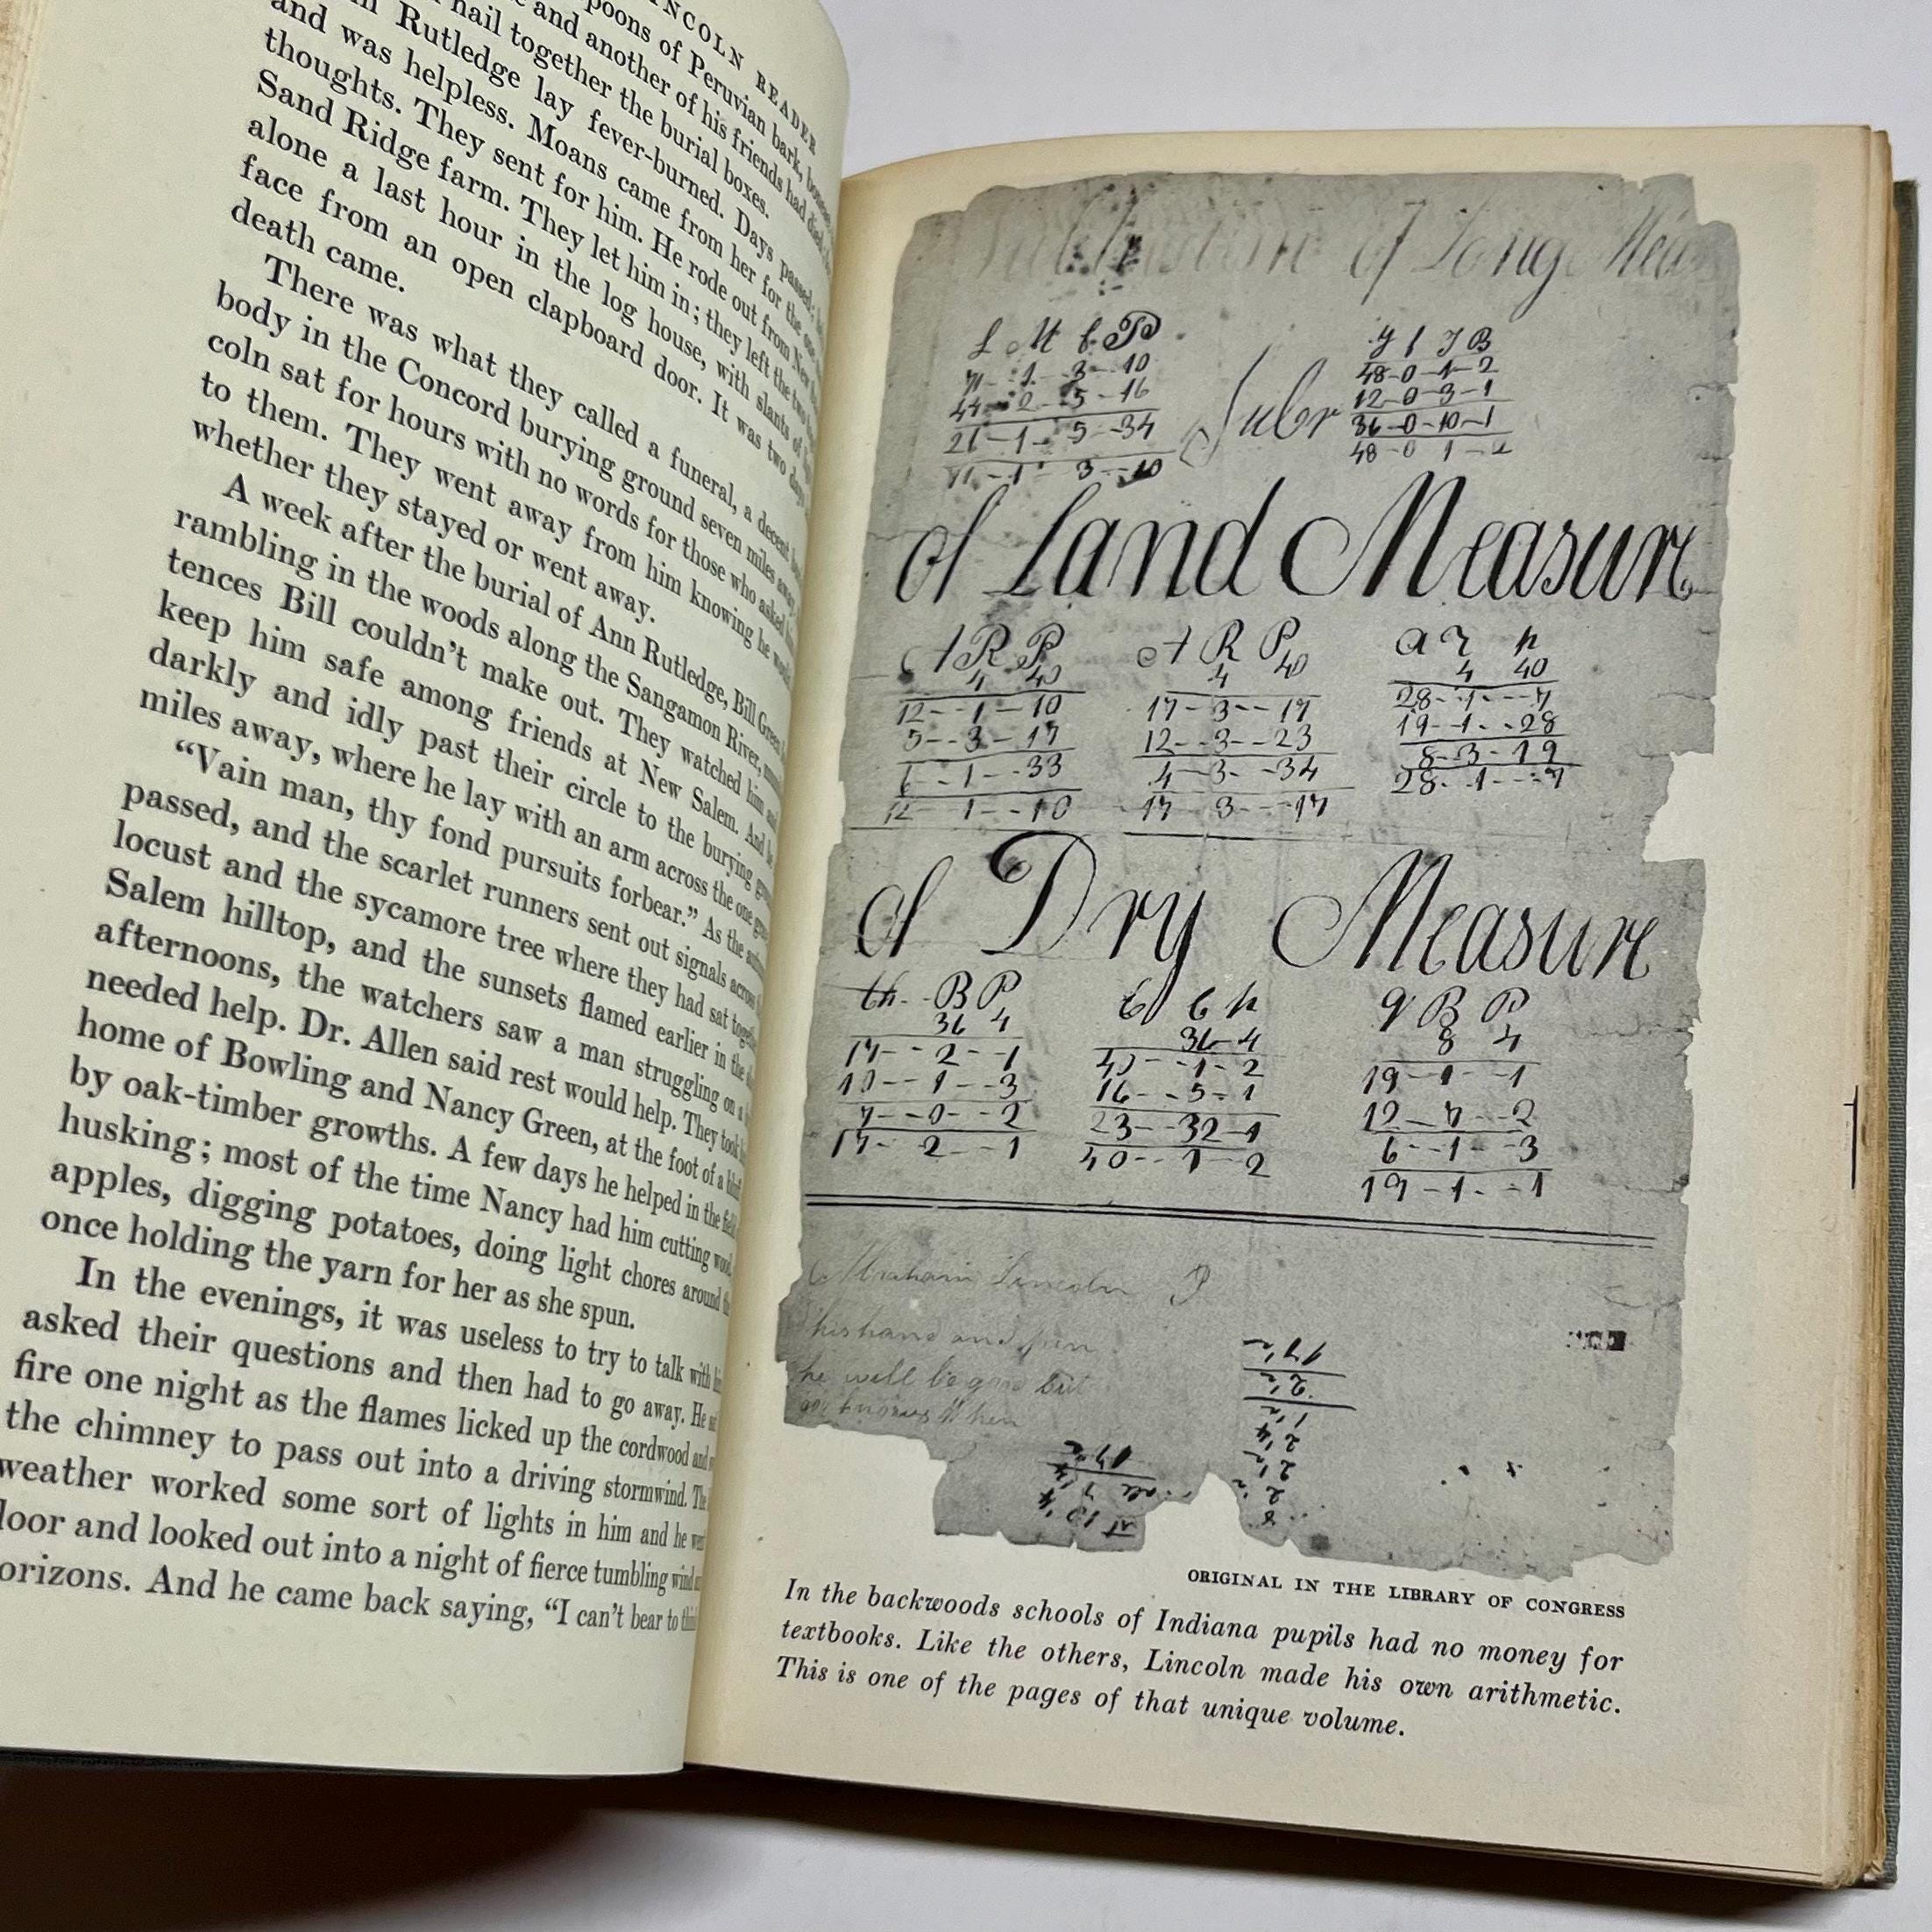 NCOLN READER
poons of Peruvian bark,
and another of his friends had died,
nail together the burial boxes.
Rutledge lay fever-burned. Days passed;
and was helpless. Moans came from her for the one
thoughts. They sent for him. He rode out from New
Sand Ridge farm. They let him in; they left the two
alone a last hour in the log house, with slants of
face from an open clapboard door. It was two days
death came.
There was what they called a funeral, a decent
body in the Concord burying ground seven miles away,
coln sat for hours with no words for those who asked
to them. They went away from him knowing he would
whether they stayed or went away.
A week after the burial of Ann Rutledge, Bill Green
rambling in the woods along the Sangamon River,
tences Bill couldn't make out. They watched him and
keep him safe among friends at New Salem. And he
darkly and idly past their circle to the burying
miles away, where he lay with an arm across the one
“Vain man, thy fond pursuits forbear.” As the
passed, and the scarlet runners sent out signals across
locust and the sycamore tree where they had sat
Salem hilltop, and the sunsets flamed earlier in the
afternoons, the watchers saw a man struggling on a
needed help. Dr. Allen said rest would help. They took
home of Bowling and Nancy Green, at the foot of a
by oak-timber growths. A few days he helped in the
husking; most of the time Nancy had him cutting wood,
apples, digging potatoes, doing light chores around
once holding the yarn for her as she spun.
In the evenings, it was useless to try to talk with
asked their questions and then had to go away. He
fire one night as the flames licked up the cordwood and
the chimney to pass out into a driving stormwind. The
weather worked some sort of lights in him and he
loor and looked out into a night of fierce tumbling wind
orizons. And he came back saying, “I can't bear to
of Long Mea
L M f P
71--1--3--10
44--2--5--16
21--1--5--34
71--1--3--10
Subr
Y f I B
48-0-1-2
12-0-3-1
36-0-10-1
48-0 1-2
of Land Measure
A R P
4 40
12--1--10
5--3--17
6--1--33
12 1--10
A R P
4 40
17-3--17
12--3--23
4-3--34
17--3---17
a r p
4 40
28--1---7
19--1--28
8-3-19
28--1---7
of Dry Measure
Ch. B P
36 4
17--2--1
10--1--3
7--0--2
17--2--1
C b p
36-4
40--1-2
16--5-1
23--32-1
40--1-2
q B P
8 4
19--1--1
12--7--2
6--1--3
19-1--1
Abraham Lincoln
his hand and pen
he will be good but
god knows When
ORIGINAL IN THE LIBRARY OF CONGRESS
In the backwoods schools of Indiana pupils had no money for
textbooks. Like the others, Lincoln made his own arithmetic.
This is one of the pages of that unique volume.